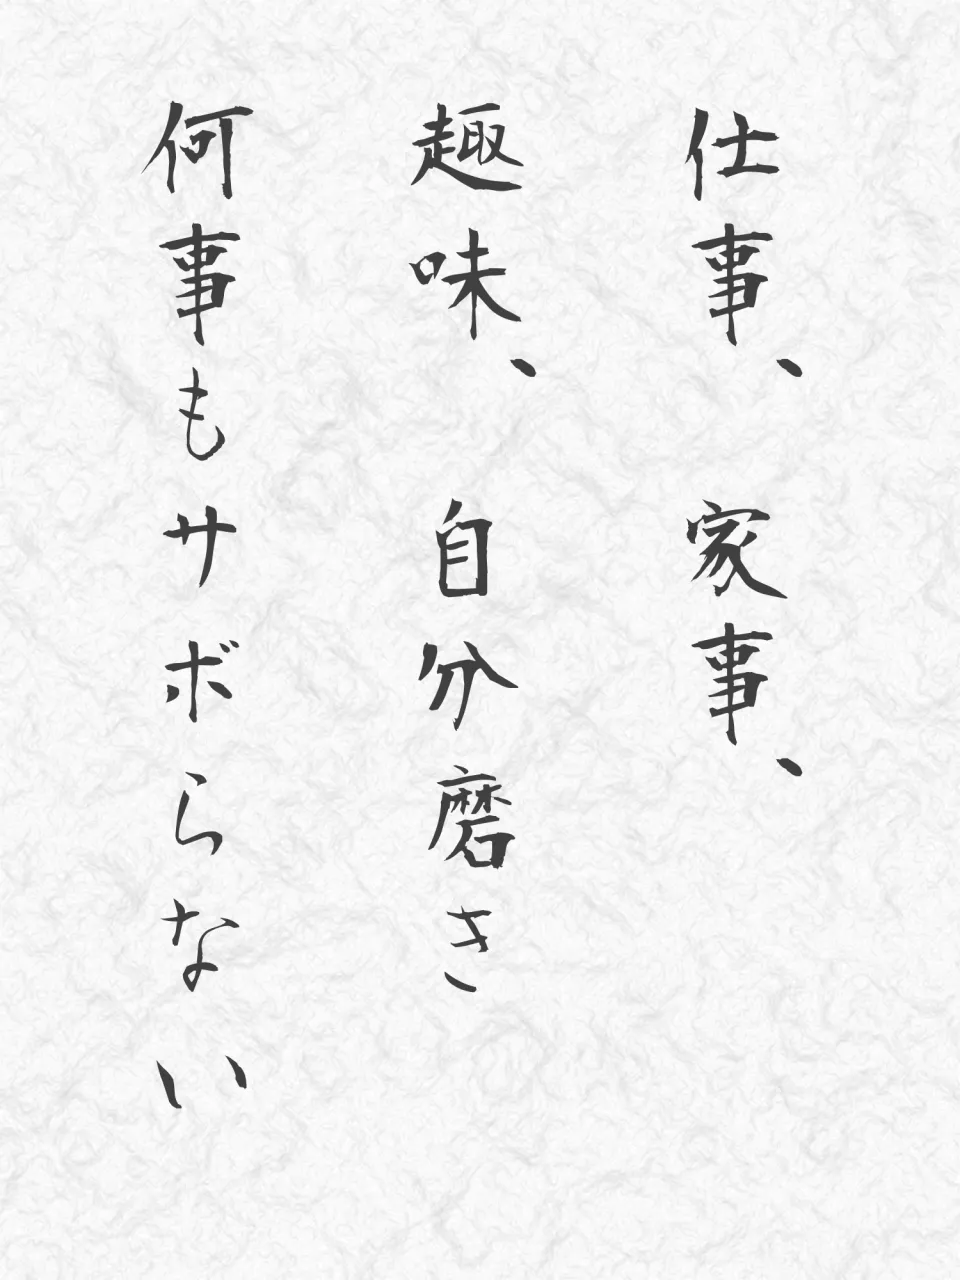 仕事、家事、
趣味、自分磨き
何事もサボらない